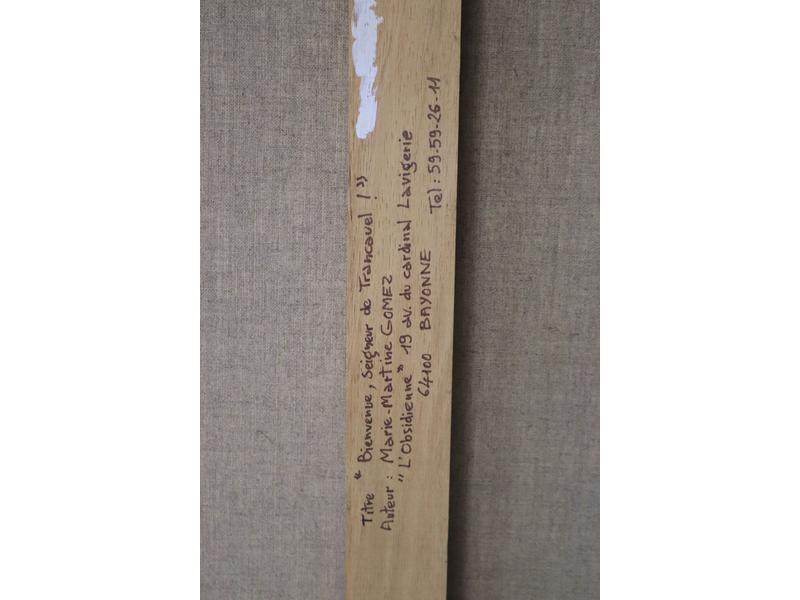 Titre " Bienvenue, Seigneur de Trancavel ! "
Auteur : Marie-Martine GOMEZ
" L'Obsidienne " 19 av. du cardinal Lavigerie
64100 BAYONNE Tel : 59-59-26-11